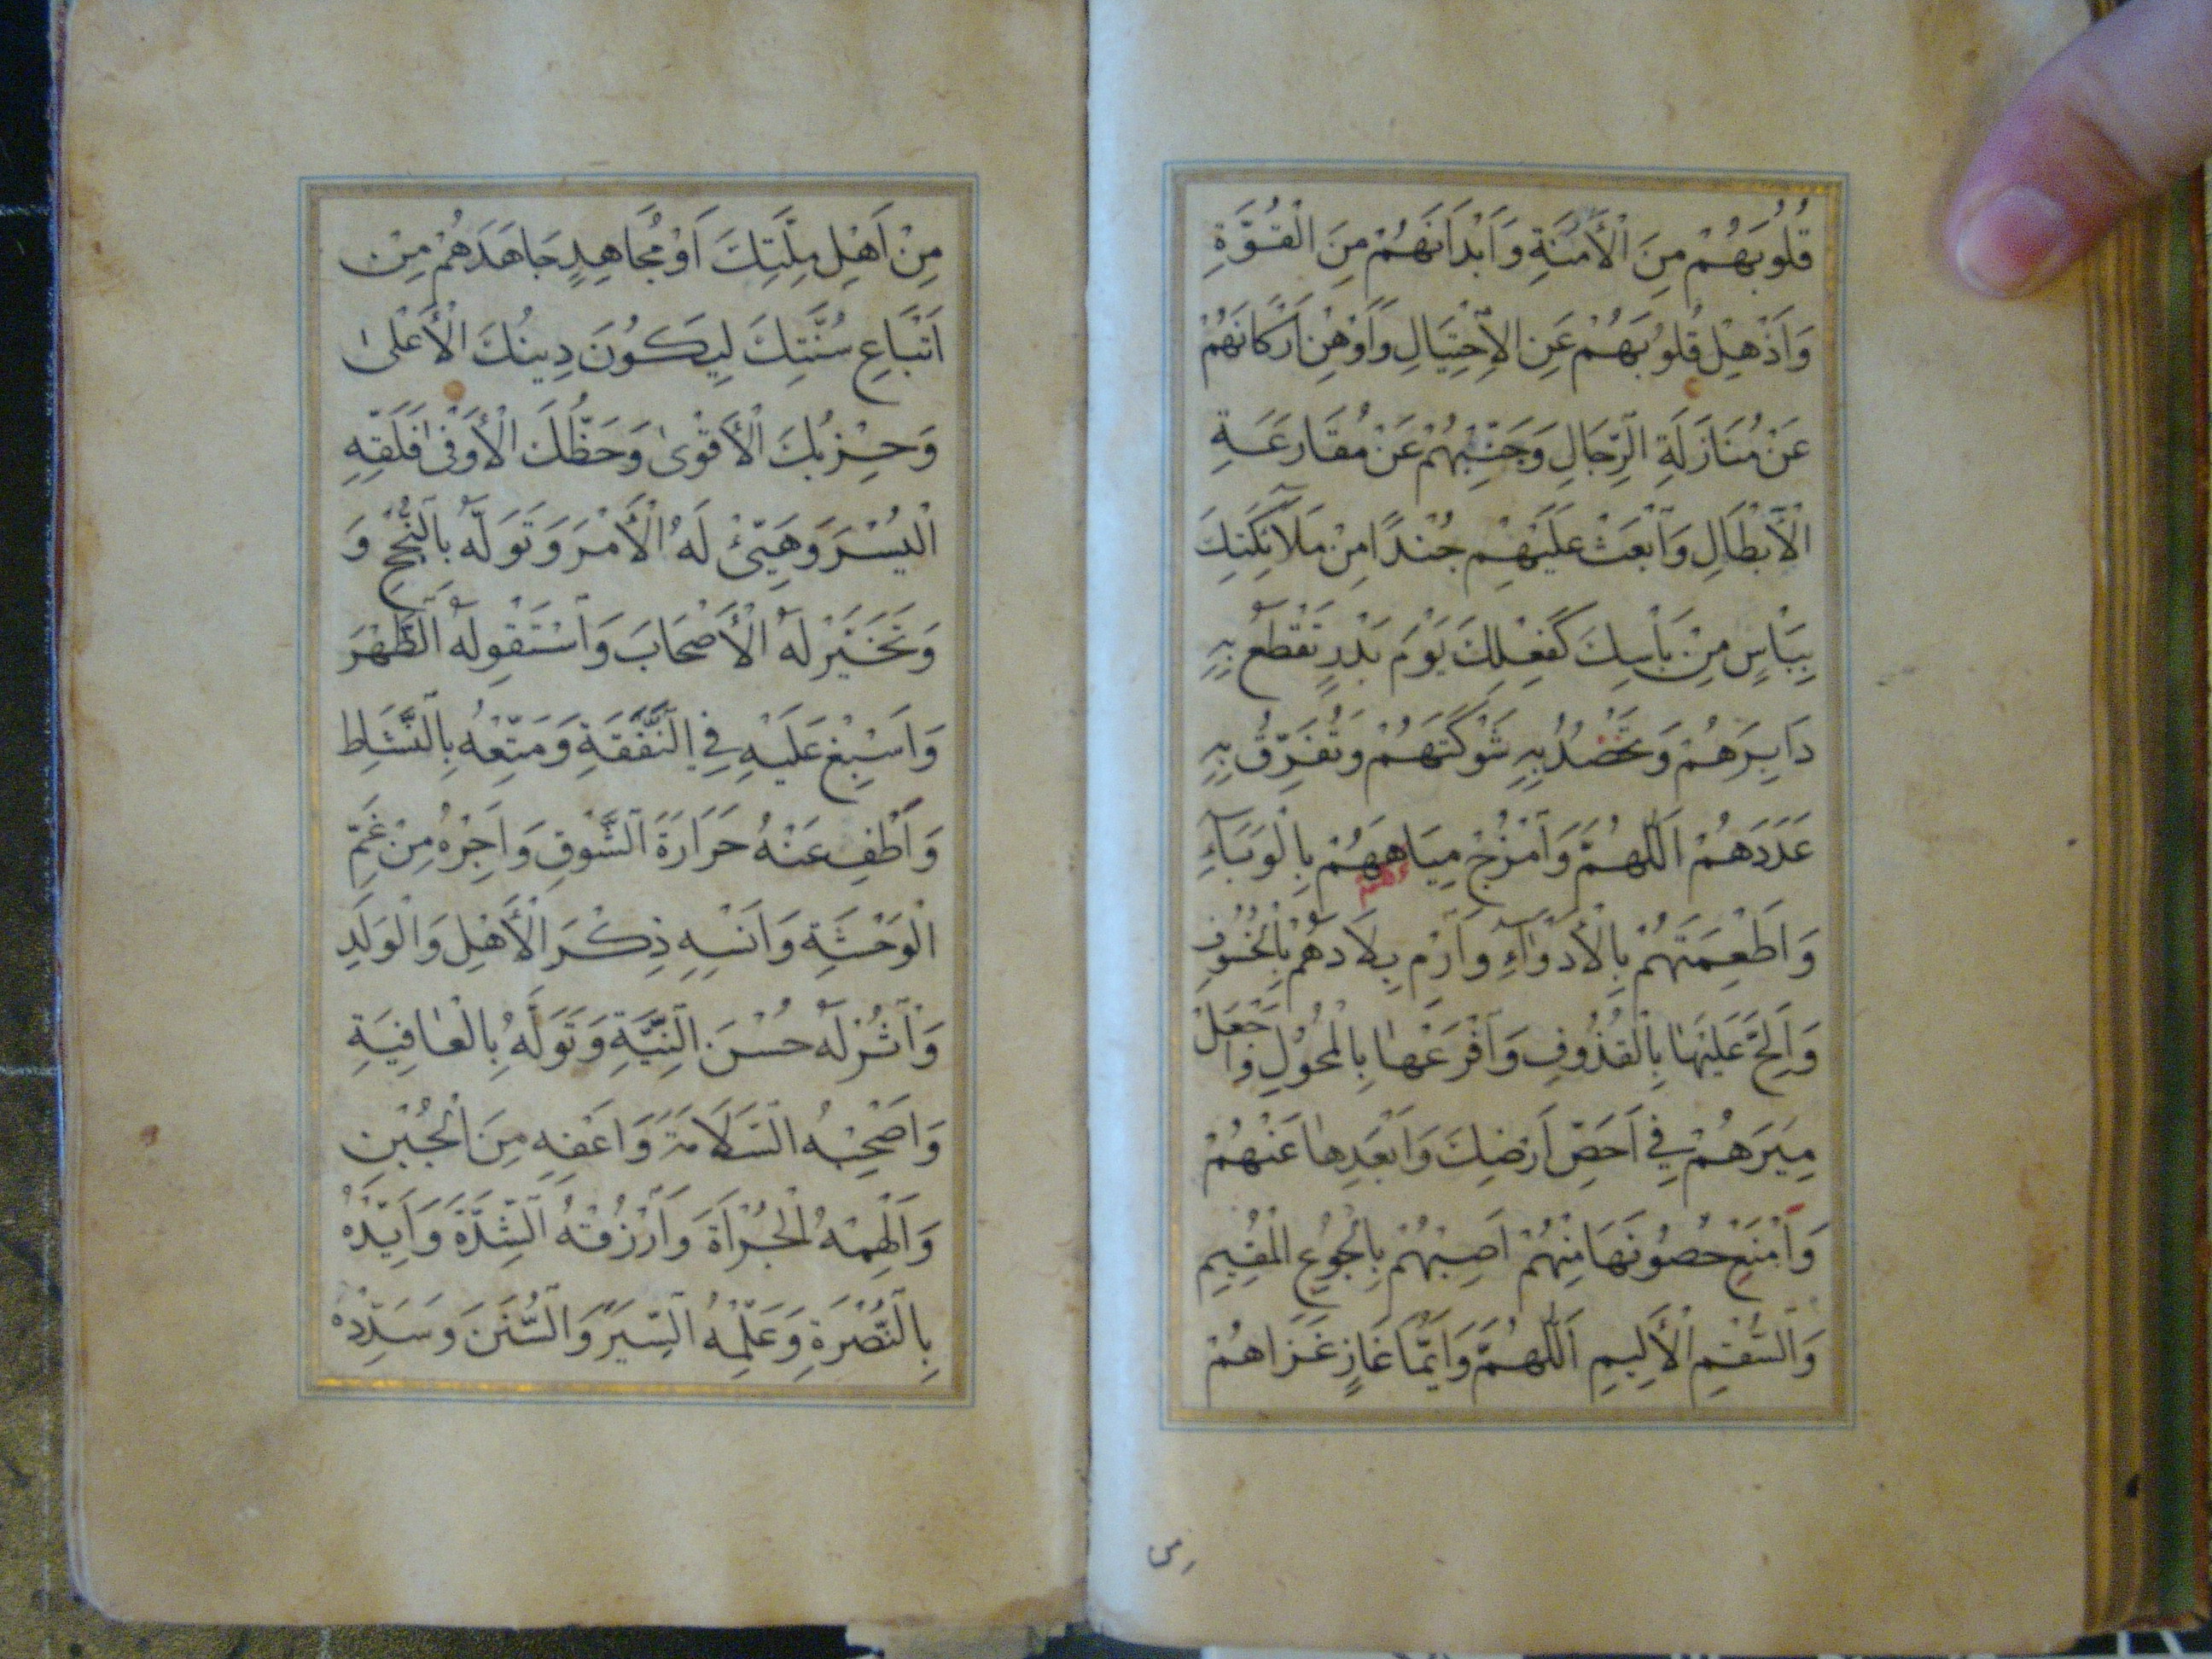 قُلُوبَهُمْ مِنَ الْأَمَنَةِ وَاَبْدَانَهُمْ مِنَ الْقُوَّةِ
وَاَذْهِلْ قُلُوبَهُمْ عَنِ الْاِحْتِيَالِ وَاَوْهِنْ اَرْكَانَهُمْ
عَنْ مُنَازَلَةِ الرِّجَالِ وَجَنِّبْهُمْ عَنْ مُقَارَعَةِ
الْاَبْطَالِ وَابْعَثْ عَلَيْهِمْ جُنْدًا مِنْ مَلَآئِكَتِكَ
بِبَاْسٍ مِنْ بَاْسِكَ كَفِعْلِكَ يَوْمَ بَدْرٍ تَقْطَعُ بِهِ
دَابِرَهُمْ وَتَحْصُدُ بِهِ شَوْكَتَهُمْ وَتُفَرِّقُ بِهِ
عَدَدَهُمْ اَللّٰهُمَّ وَامْزُجْ مِيَاهَهُمْ بِالْوَبَآءِ
وَاَطْعِمَتَهُمْ بِالْأَدْوَآءِ وَارْمِ بِلَادَهُمْ بِالْخُسُوفِ
وَاَلِحَّ عَلَيْهَا بِالْقُذُوفِ وَافْرَعْهَا بِالْمُحُولِ وَاجْعَلْ
مِيَرَهُمْ فِي اَحَصِّ اَرْضِكَ وَاَبْعَدِهَا عَنْهُمْ
وَامْنَعْ حُصُونَهَا مِنْهُمْ اَصِبْهُمْ بِالْجُوعِ الْمُقِيمِ
وَالسُّقْمِ الْأَلِيمِ اَللّٰهُمَّ وَاَيُّمَا غَازٍ غَزَاهُمْ
مِنْ
مِنْ اَهْلِ مِلَّتِكَ اَوْ مُجَاهِدٍ جَاهَدَهُمْ مِنْ
اَتْبَاعِ سُنَّتِكَ لِيَكُونَ دِينُكَ الْأَعْلٰى
وَحِزْبُكَ الْأَقْوٰى وَحَظُّكَ الْأَوْفٰى فَلَقِّهِ
الْيُسْرَ وَهَيِّئْ لَهُ الْأَمْرَ وَتَوَلَّهُ بِالنُّجْحِ وَ
وَتَخَيَّرْ لَهُ الْأَصْحَابَ وَاسْتَقْوِ لَهُ الظَّهْرَ
وَاَسْبِغْ عَلَيْهِ فِي النَّفَقَةِ وَمَتِّعْهُ بِالنَّشَاطِ
وَاَطْفِ عَنْهُ حَرَارَةَ الشَّوْقِ وَاَجِرْهُ مِنْ غَمِّ
الْوَحْشَةِ وَاَنْسِهِ ذِكْرَ الْأَهْلِ وَالْوَلَدِ
وَأْثُرْ لَهُ حُسْنَ النِّيَّةِ وَتَوَلَّهُ بِالْعَافِيَةِ
وَاَصْحِبْهُ السَّلَامَةَ وَاَعْفِهِ مِنَ الْجُبْنِ
وَاَلْهِمْهُ الْجُرْاَةَ وَارْزُقْهُ الشِّدَّةَ وَاَيِّدْهُ
بِالنُّصْرَةِ وَعَلِّمْهُ السِّيَرَ وَالسُّنَنَ وَسَدِّدْهُ